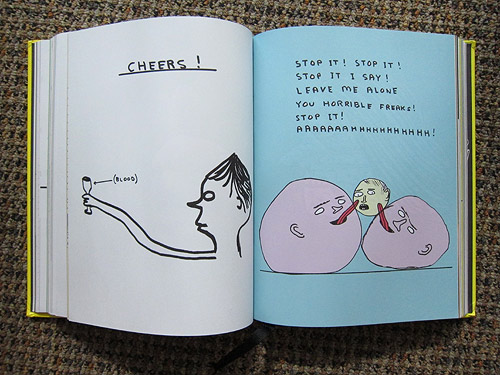 CHEERS!
(BLOOD)
STOP IT! STOP IT!
STOP IT I SAY!
LEAVE ME ALONE
YOU HORRIBLE FREAKS!
STOP IT!
AAAAAAAHHHHHHHHHHH!